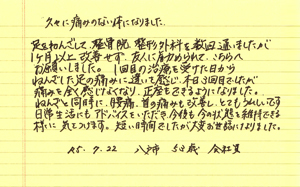 久々に痛みのない体になりました。
足をねんざして整骨院、整形外科を数回通いましたが
1ヶ月以上改善せず、友人に進められて、こちらへ
お願いしました。1回目の治療を受けた日から
ねんざした足の痛みに違いを感じ、本日3回目でしたが
痛みを全く感じなくなり、正座もできるようになりました。
ねんざと同時に、腰痛、首の痛みも改善し、とてもうれしいです
日常生活にもアドバイスをいただき、今後も今の状態を維持できる
様に気をつけます。短い時間でしたが大変お世話になりました。
R5.9.22 53歳 会社員